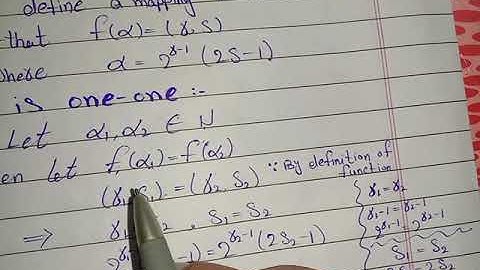 define a mapping
that f(α) = (γ, S)
where α = 2^(γ-1) (2S-1)
is one-one :-
Let α₁, α₂ ∈ N
en let f(α₁) = f(α₂)
(γ₁, S₁) = (γ₂, S₂) ∵ By definition of function
⇒ S₁ = S₂
γ₁ = γ₂
γ₁-1 = γ₂-1
2^(γ₁-1) = 2^(γ₂-1)
-1) = 2^(γ₂-1) (2S₂-1)
S₁ = S₂